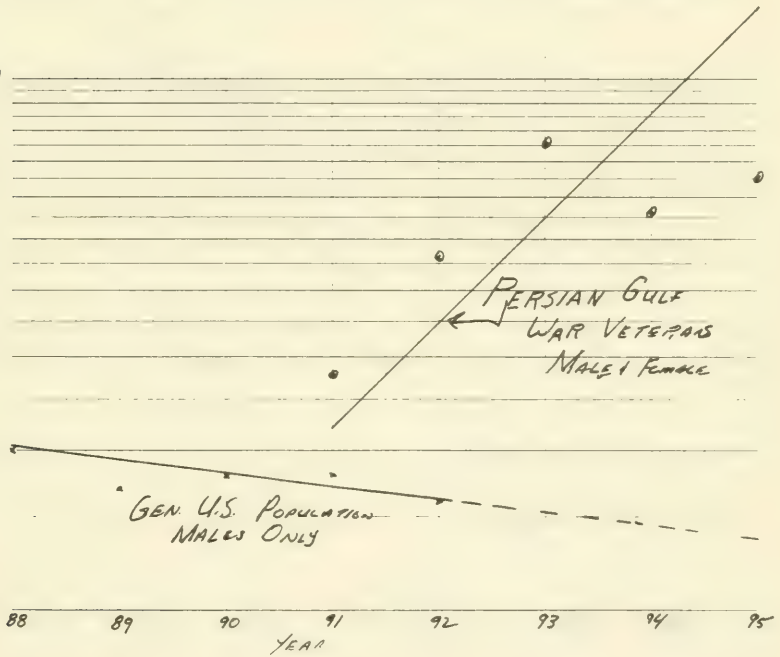 PERSIAN GULF
WAR VETERANS
MALE & FEMALE
GEN. U.S. POPULATION
MALES ONLY
88 89 90 91 92 93 94 95
YEAR